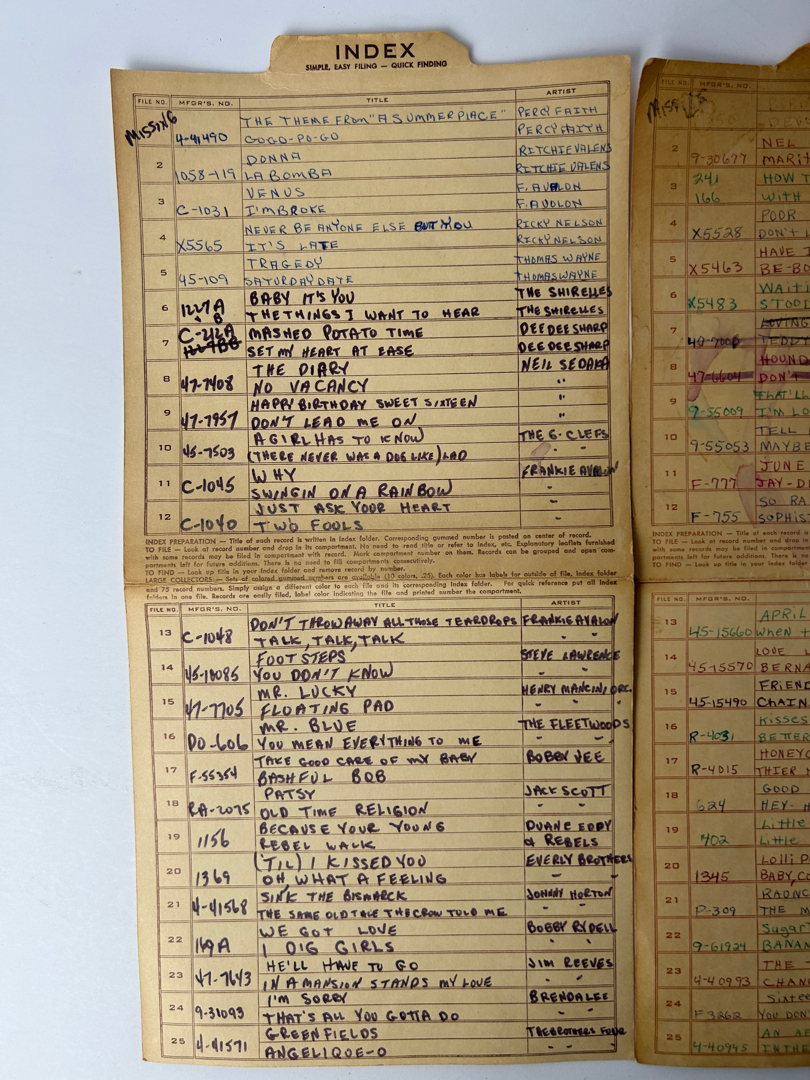 INDEX
SIMPLE, EASY FILING — QUICK FINDING
FILE NO. MFGR'S. NO. TITLE ARTIST
MISSING THE THEME FROM "A SUMMER PLACE" PERCY FAITH
4-41490 GO-GO-PO-GO PERCY FAITH
2 DONNA RITCHIE VALENS
1058-119 LA BOMBA RITCHIE VALENS
3 VENUS F. AVALON
C-1031 I'M BROKE F. AVOLON
4 NEVER BE ANYONE ELSE BUT YOU RICKY NELSON
X5565 IT'S LATE RICKY NELSON
5 TRAGEDY THOMAS WAYNE
45-109 SATURDAY DATE THOMAS WAYNE
6 1227A BABY IT'S YOU THE SHIRELLES
B THE THINGS I WANT TO HEAR THE SHIRELLES
7 C-212A MASHED POTATO TIME DEE DEE SHARP
SET MY HEART AT EASE DEE DEE SHARP
8 THE DIARY NEIL SEDAKA
47-7408 NO VACANCY "
9 HAPPY BIRTHDAY SWEET SIXTEEN "
47-7957 DON'T LEAD ME ON "
10 A GIRL HAS TO KNOW THE G. CLEFS
45-7503 (THERE NEVER WAS A DOG LIKE) LAD "
11 WHY FRANKIE AVALON
C-1045 SWINGIN ON A RAINBOW "
12 JUST ASK YOUR HEART "
C-1040 TWO FOOLS "
INDEX PREPARATION — Title of each record is written in Index folder. Corresponding gummed number is posted on center of record.
TO FILE — Look at record number and drop in its compartment. No need to read title or refer to index, etc. Explanatory leaflets furnished
with some records may be filed in compartment with record. Mark compartment number on them. Records can be grouped and open com-
partments left for future additions. There is no need to fill compartments consecutively.
TO FIND — Look up title in your Index folder and remove record by number.
LARGE COLLECTORS — Sets of colored gummed numbers are available (10 colors, .25). Each color has labels for outside of file, Index folder
and 75 record numbers. Simply assign a different color to each file and its corresponding Index folder. For quick reference put all Index
folders in one file. Records are easily filed, label color indicating the file and printed number the compartment.
FILE NO. MFGR'S. NO. TITLE ARTIST
13 DON'T THROW AWAY ALL THOSE TEARDROPS FRANKIE AVALON
C-1048 TALK, TALK, TALK " "
14 FOOTSTEPS STEVE LAWRENCE
45-10085 YOU DON'T KNOW " "
15 MR. LUCKY HENRY MANCINI, ORC.
47-7705 FLOATING PAD " "
16 MR. BLUE THE FLEETWOODS
DO-606 YOU MEAN EVERYTHING TO ME " "
17 TAKE GOOD CARE OF MY BABY BOBBY VEE
F-55354 BASHFUL BOB
18 PATSY JACK SCOTT
RA-2075 OLD TIME RELIGION " "
19 BECAUSE YOUR YOUNG DUANE EDDY
1156 REBEL WALK & REBELS
20 ('TIL) I KISSED YOU EVERLY BROTHERS
1369 OH WHAT A FEELING "
21 SINK THE BISMARCK JOHNNY HORTON
4-41568 THE SAME OLD TALE THE CROW TOLD ME " "
22 WE GOT LOVE BOBBY RYDELL
169A I DIG GIRLS " "
23 HE'LL HAVE TO GO JIM REEVES
47-7643 IN A MANSION STANDS MY LOVE " "
24 I'M SORRY BRENDA LEE
9-31093 THAT'S ALL YOU GOTTA DO " "
25 GREENFIELDS THE BROTHERS FOUR
4-41571 ANGELIQUE-O " " "
FILE NO. MFGR'S. NO.
MISSING
2 NEL
9-30677 MARIT
3 241 HOW T
166 WITH
4 POOR
X5528 DON'T L
5 HAVE I
X5463 BE-BO
6 WAITI
X5483 STOOD
7 LOVING
TEDDY
8 HOUND
47-6604 DON'T
9 THAT'LL
9-55009 I'M LO
10 TELL
9-55053 MAYBE
11 JUNE
F-777 JAY-D
12 SO RA
F-755 SOPHIS
INDEX PREPARATION — Title of
TO FILE — Look at record number and drop in
with some records may be filed in compartme
partments left for future additions. There is no
TO FIND — Look up title in your Index folder
FILE NO. MFGR'S. NO.
13 APRIL
45-15660 When t
14 LOVE
45-15570 BERNA
15 FRIEND
45-15490 CHAIN
16 Kisses
R-4031 BETTER
17 HONEYC
R-4015 THIER M
18 GOOD
624 HEY-
19 Little
402 Little
20 Lolli P
1345 BABY, CO
21 RAUNC
P-309 THE M
22 Sugar
9-61924 BANAN
23 THE T
4-40993 CHANC
24 Sixtee
F3262 YOU DON
25 AN AF
4-40945 IN THE